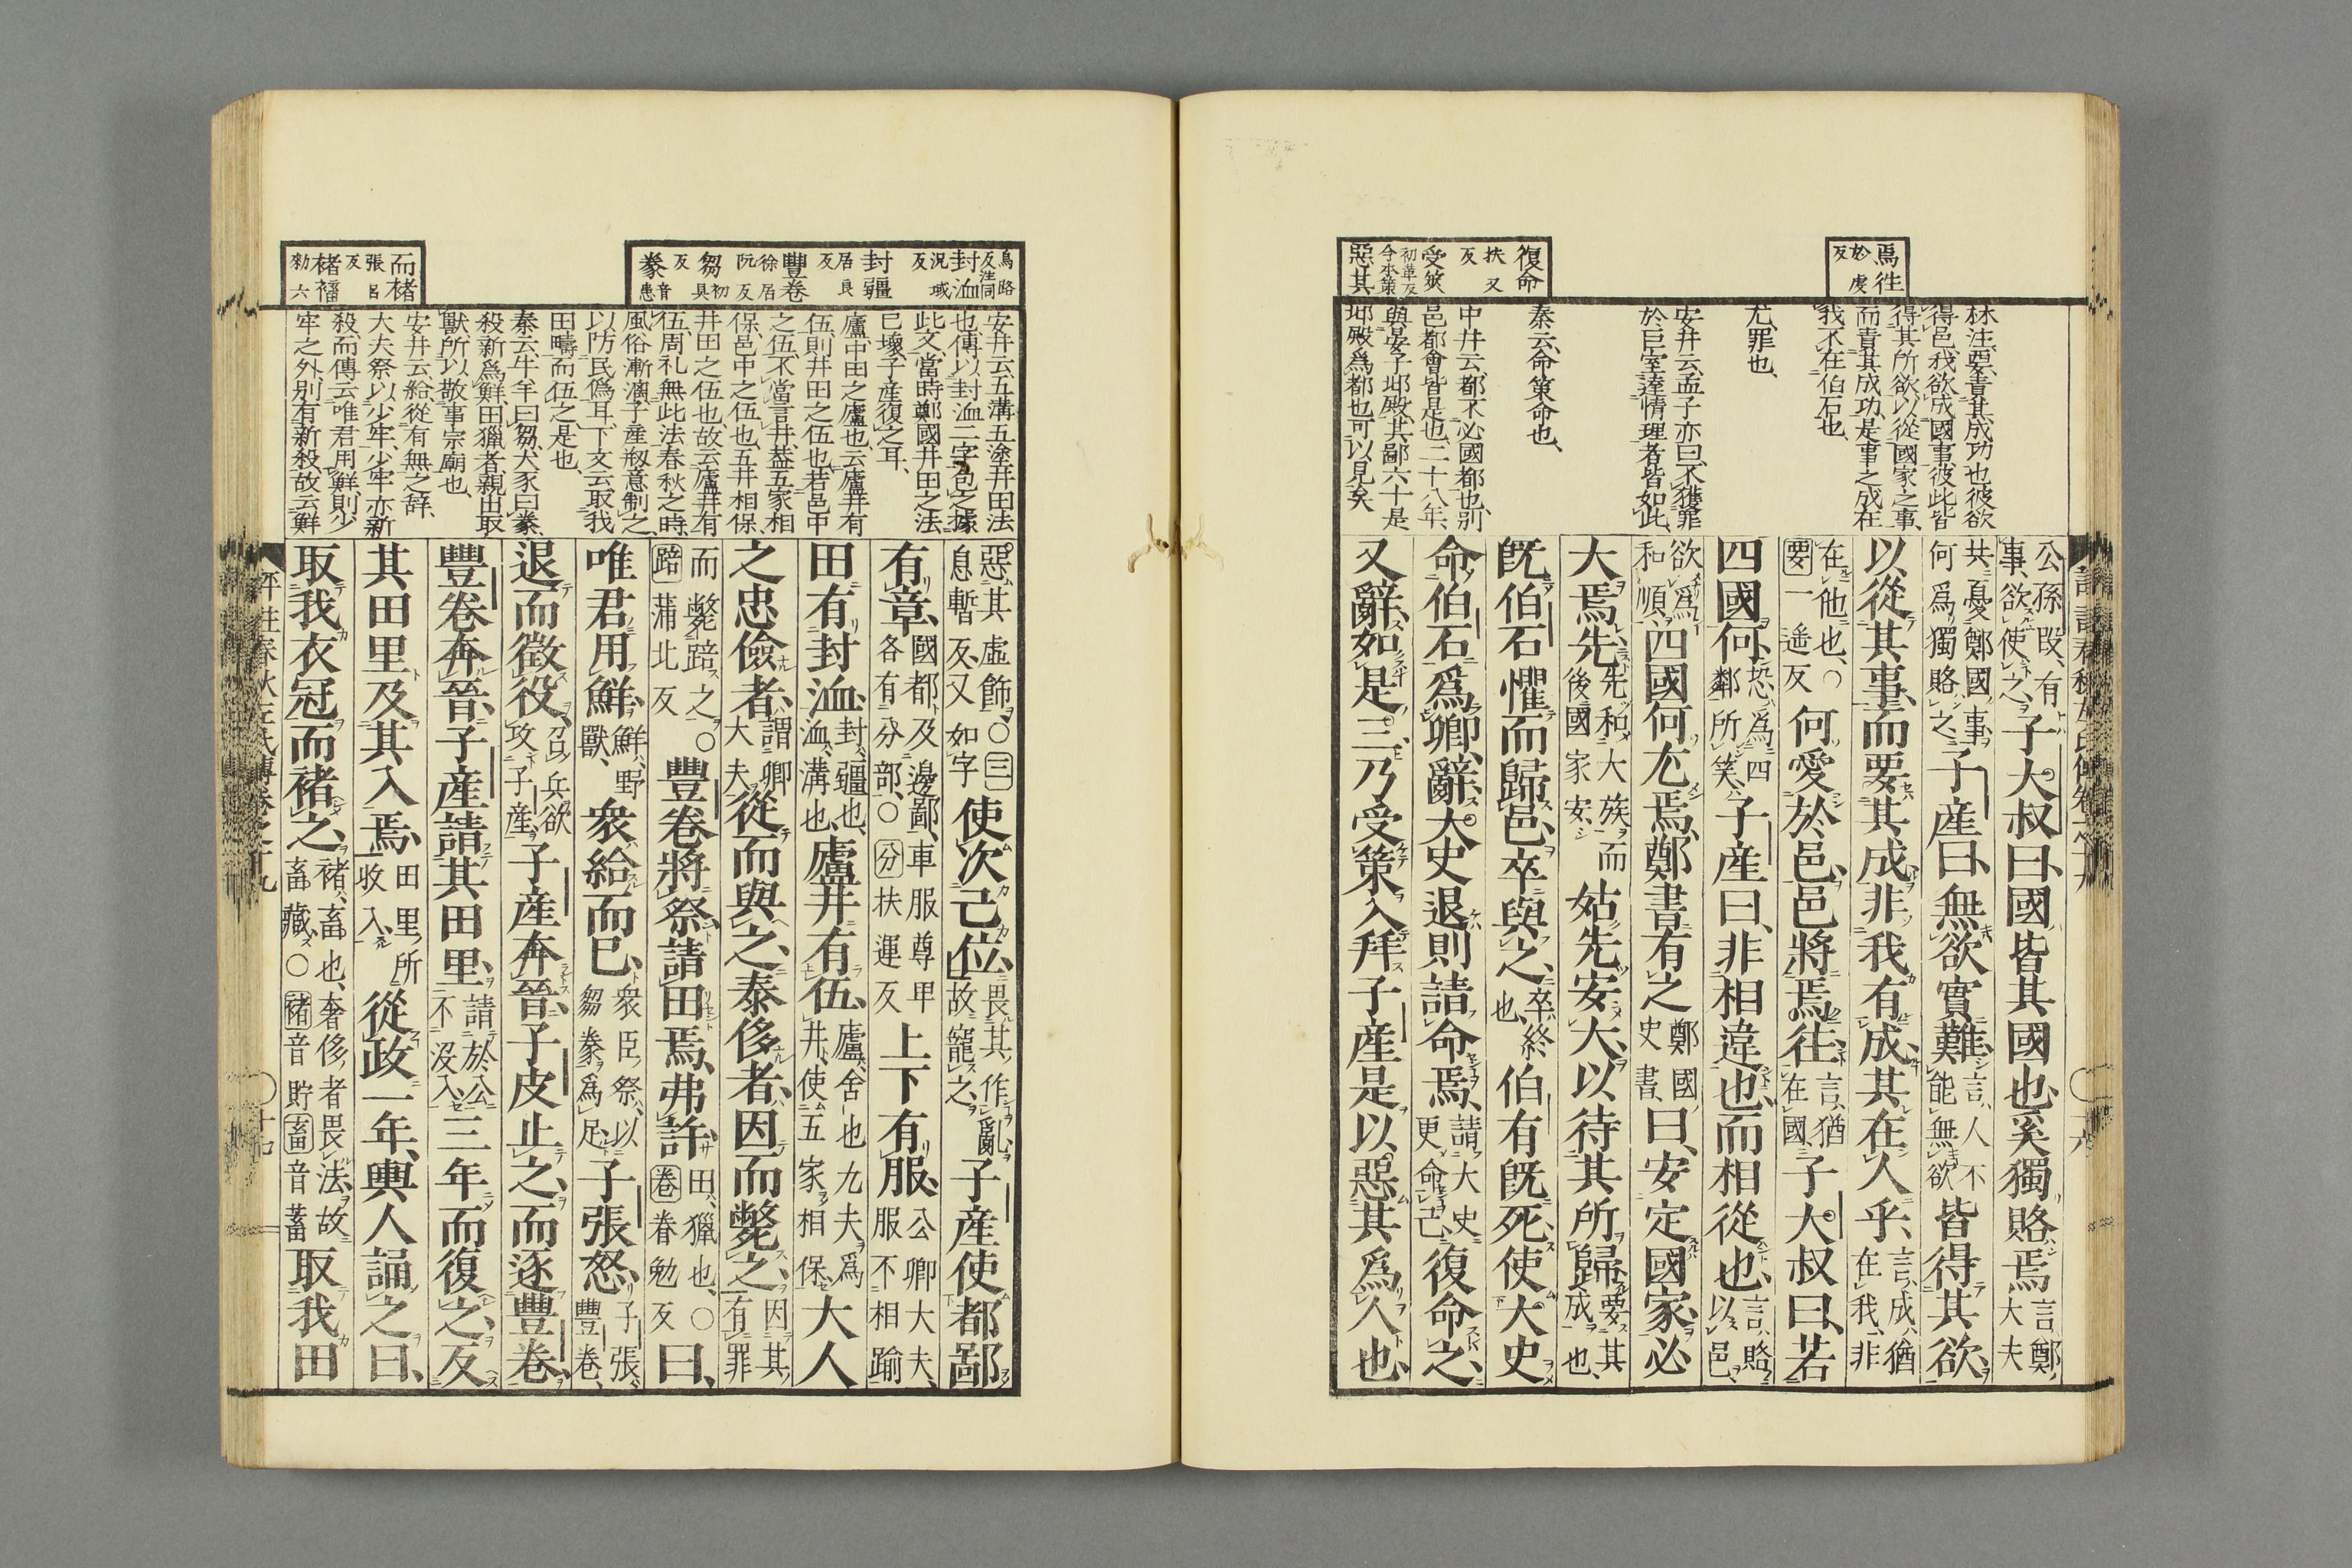 焉往
於虔
反
復命
扶又
反
受筴
初革反
今本策
惡其
林注要責其成功也彼欲
得邑我欲成國事彼此皆
得其所欲以從國家之事
而責其成功是事之成在
我不在伯石也
尤罪也
安井云孟子亦曰不獲罪
於巨室達情理者皆如此
秦云命策命也
中井云都不必國都也別
邑都會皆是也二十八年
與晏子邶殿其鄙六十是
邶殿爲都也可以見矣
公孫段有
事欲使之
子大叔曰國皆其國也奚獨賂焉
言鄭
大夫
共憂鄭國事
何爲獨賂之
子產曰無欲實難
言人不
能無欲
皆得其欲
以從其事而要其成非我有成其在人乎
言成猶
在我非
在他也○
要一遥反
何愛於邑邑將焉往
言猶
在國
子大叔曰若
四國何
恐爲四
鄰所笑
子產曰非相違也而相從也
言賂
以邑
欲爲
和順
四國何尤焉鄭書有之
鄭國
史書
曰安定國家必
大焉先
先和大族而
後國家安
姑先安大以待其所歸
要其
成也
旣伯石懼而歸邑卒與之
卒終
也
伯有旣死使大史
命伯石爲卿辭大史退則請命焉
請大史
更命己
復命之
又辭如是三乃受策入拜子產是以惡其爲人也
烏路
反注同
封洫
況域
反
封疆
居良
反
豐卷
徐居
阮反
芻
初具
反
豢
音患
而褚
張呂
反
褚稸
勑六
安井云五溝五塗井田法
也傳以封洫二字包之據
此文當時鄭國井田之法
已壞子產復之耳
廬中田之廬也云廬井有
伍則井田之伍也若邑中
之伍不當言井葢五家相
保邑中之伍也五井相保
井田之伍也故云廬井有
伍周礼無此法春秋之時
風俗漸漓子產剏意制之
以防民僞耳下文云取我
田疇而伍之是也
秦云牛羊曰芻犬豕曰豢
殺新爲鮮田獵者親出取
獸所以敬事宗廟也
安井云給從有無之辞
大夫祭以少牢少牢亦新
殺而傳云唯君用鮮則少
牢之外別有新殺故云鮮
惡其虛飾○三
息暫反又如字
使次己位
畏其作亂
故寵之
子產使都鄙
有章
國都及邊鄙車服尊卑
各有分部○分扶運反
上下有服
公卿大夫
服不相踰
田有封洫
封疆也
洫溝也
廬井有伍
廬舍也九夫爲
井使五家相保
大人
之忠儉者
謂卿
大夫
從而與之泰侈者因而斃之
因其
有罪
而斃踣之○
踣蒲北反
豐卷將祭請田焉弗許
田獵也○
卷眷勉反
曰
唯君用鮮
鮮野
獸
衆給而已
衆臣祭以
芻豢爲足
子張怒
子張
豐卷
退而徵役
召兵欲
攻子產
子產奔晉子皮止之而逐豐卷
豐卷奔晉子產請其田里
請於公
不沒入
三年而復之反
其田里及其入焉
田里所
收入
從政一年輿人誦之曰
取我衣冠而褚之
褚畜也奢侈者畏法故
畜藏○褚音貯畜音蓄
取我田